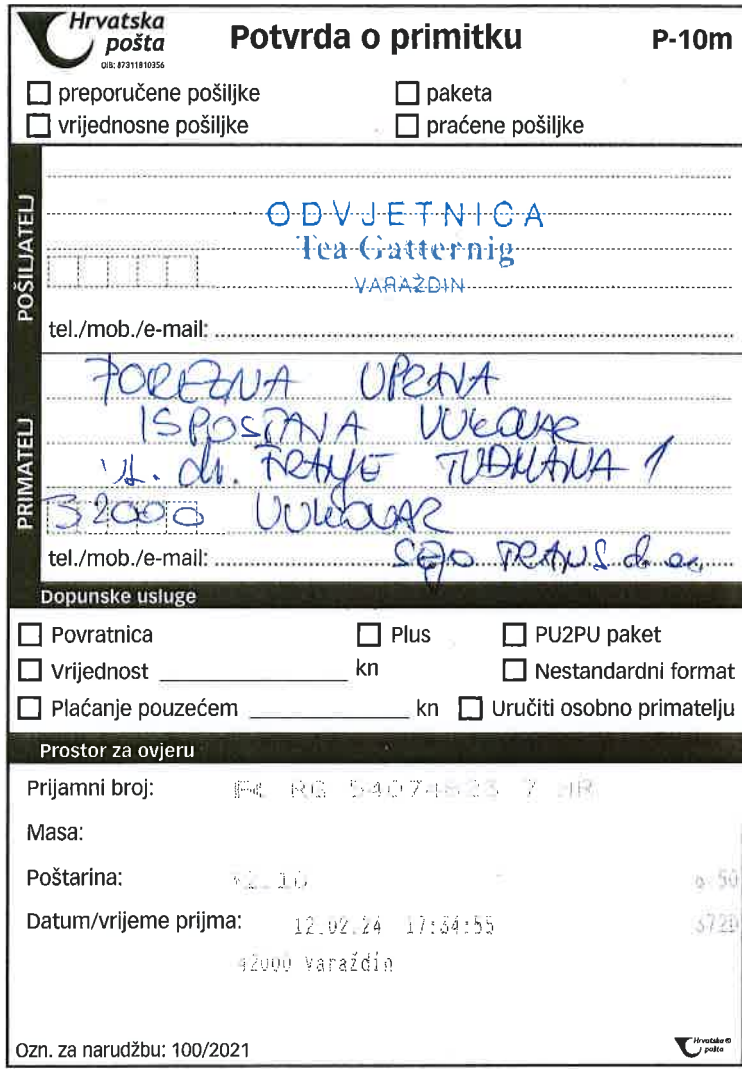 Hrvatska
pošta
OIB: 87311810356
Potvrda o primitku
P-10m
preporučene pošiljke
paketa
vrijednosne pošiljke
praćene pošiljke
POŠILJATELJ
ODVJETNICA
Tea Gatternig
VARAŽDIN
tel./mob./e-mail:
PRIMATELJ
POREZNA UPRAVA
ISPOSTAVA VUKOVAR
dr. FRANJE TUĐMANA 1
32000 VUKOVAR
tel./mob./e-mail: TRANS d.o.o.
Dopunske usluge
Povratnica
Plus
PU2PU paket
Vrijednost kn
Nestandardni format
Plaćanje pouzećem kn
Uručiti osobno primatelju
Prostor za ovjeru
Prijamni broj: RG HR
Masa:
Poštarina:
Datum/vrijeme prijma: 12.02.24
42000 Varaždin
Ozn. za narudžbu: 100/2021
Hrvatska
pošta